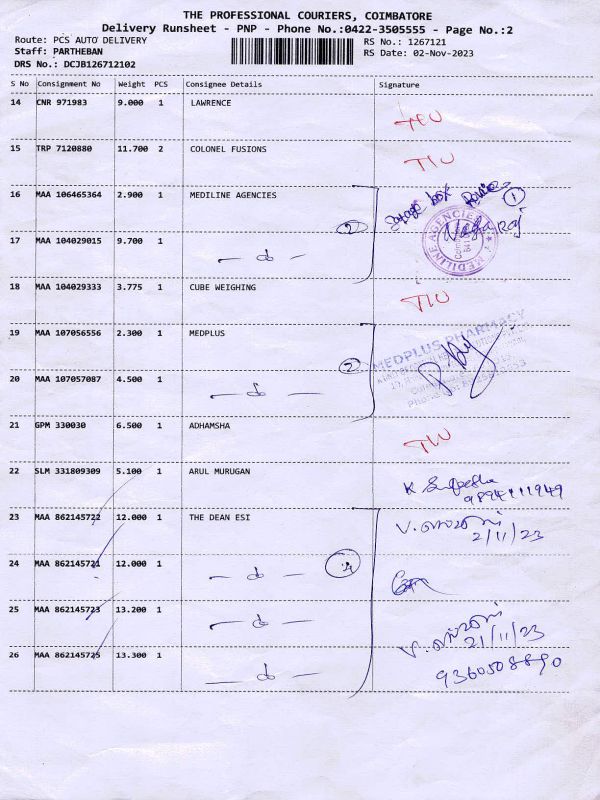 THE PROFESSIONAL COURIERS, COIMBATORE
Delivery Runsheet - PNP - Phone No.:0422-3505555 - Page No.:2
Route: PCS AUTO DELIVERY
RS No.: 1267121
Staff: PARTHEBAN
RS Date: 02-Nov-2023
DRS No.: DCJB126712102
S No Consignment No Weight PCS Consignee Details Signature
14 CNR 971983 9.000 1 LAWRENCE
15 TRP 7120880 11.700 2 COLONEL FUSIONS
16 MAA 106465364 2.900 1 MEDILINE AGENCIES
box
1
2
Nagaraj
MEDILINE AGENCIES
17 MAA 104029015 9.700 1
— do —
18 MAA 104029333 3.775 1 CUBE WEIGHING
19 MAA 107056556 2.300 1 MEDPLUS
MEDPLUS PHARMACY
2
20 MAA 107057087 4.500 1
— do —
21 GPM 330030 6.500 1 ADHAMSHA
22 SLM 331809309 5.100 1 ARUL MURUGAN
K
23 MAA 862145722 12.000 1 THE DEAN ESI
2/11/23
24 MAA 862145721 12.000 1
— do —
4
25 MAA 862145723 13.200 1
— do —
21/11/23
26 MAA 862145725 13.300 1
— do —
9360508890